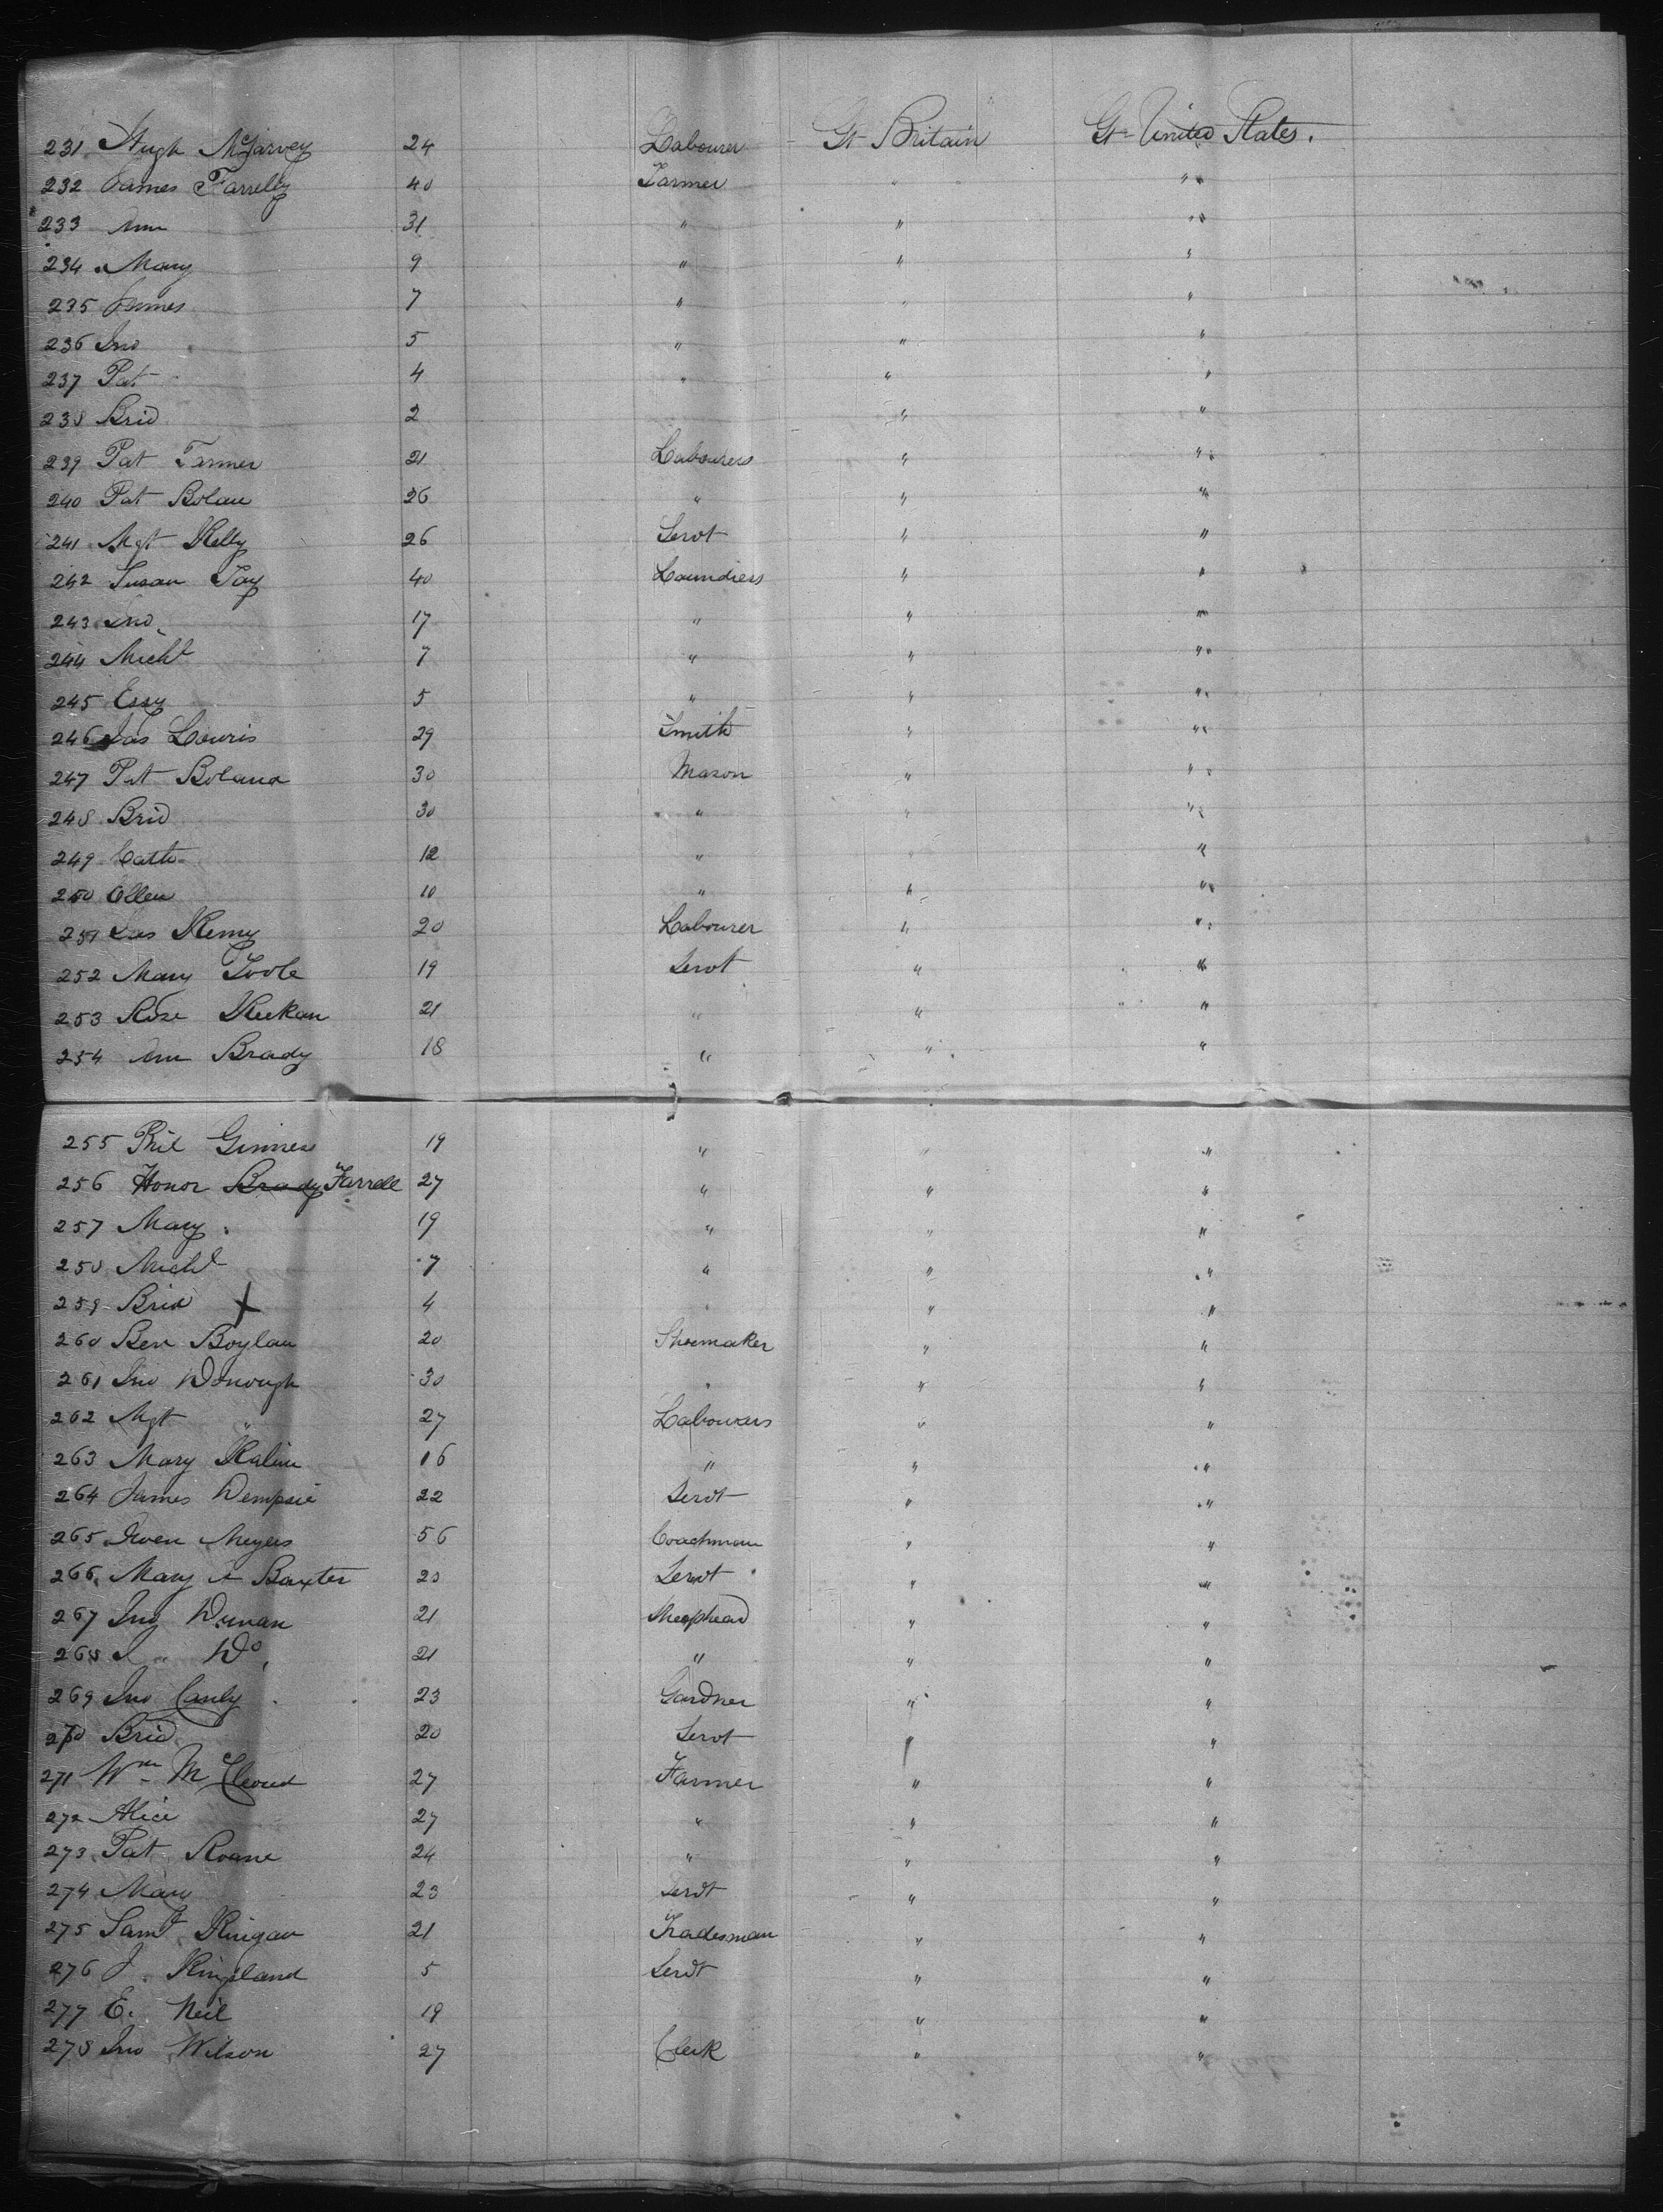 231 Hugh McGarvey 24 Labourer Gt Britain Gt United States.
232 James Farrelly 40 Farmer " "
233 Ann 31 " " "
234 Mary 9 " " "
235 James 7 " " "
236 Jno 5 " " "
237 Pat 4 " " "
238 Brid 2 " "
239 Pat Farmer 21 Labourers " "
240 Pat Bolan 26 " " "
241 Mgt Kelly 26 Servt " "
242 Susan 40 Laundress " "
243 Jno 17 " " "
244 Michl 7 " " "
245 Essy 5 " " "
246 Jas Lowris 29 Smith " "
247 Pat Boland 30 Mason " "
248 Brid 30 " " "
249 Cath 12 " " "
250 Ellen 10 " " "
251 Jas Kenny 20 Labourer " "
252 Mary Toole 19 Servt " "
253 Rose Keekan 21 " " "
254 Ann Brady 18 " " "
255 Phil Ginness 19 " " "
256 Honor Brady Farrell 27 " " "
257 Mary 19 " " "
258 Michl 7 " " "
259 Brid X 4 " " "
260 Ben Boylan 20 Shoemaker " "
261 Jno Donough 30 " " "
262 Mgt " 27 Labourers " "
263 Mary 16 " " "
264 James Dempsie 22 Servt " "
265 Owen Meyers 56 Coachman " "
266 Mary A Baxter 20 Servt " "
267 Jno 21 Shephead " "
268 J " Do 21 " " "
269 Jno 23 Gardner " "
270 Brid 20 Servt " "
271 Wm McCleoud 27 Farmer " "
272 Alice 27 " " "
273 Pat Roane 24 " " "
274 Mary 23 Servt " "
275 Saml Kinigan 21 Tradesman " "
276 J. Kingsland 5 Servt " "
277 E. Neil 19 " "
278 Jno Wilson 27 Clerk " "